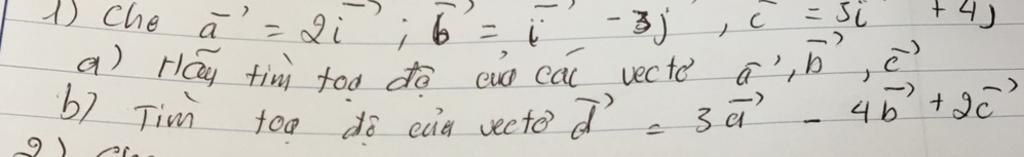 1) Cho a⃗ = 2i⃗ ; b⃗ = i⃗ - 3j⃗ , c⃗ = 5i⃗ + 4j⃗
a) Hãy tìm toạ độ của các vectơ a⃗, b⃗, c⃗
b) Tìm toạ độ của vectơ d⃗ = 3a⃗ - 4b⃗ + 2c⃗
2)